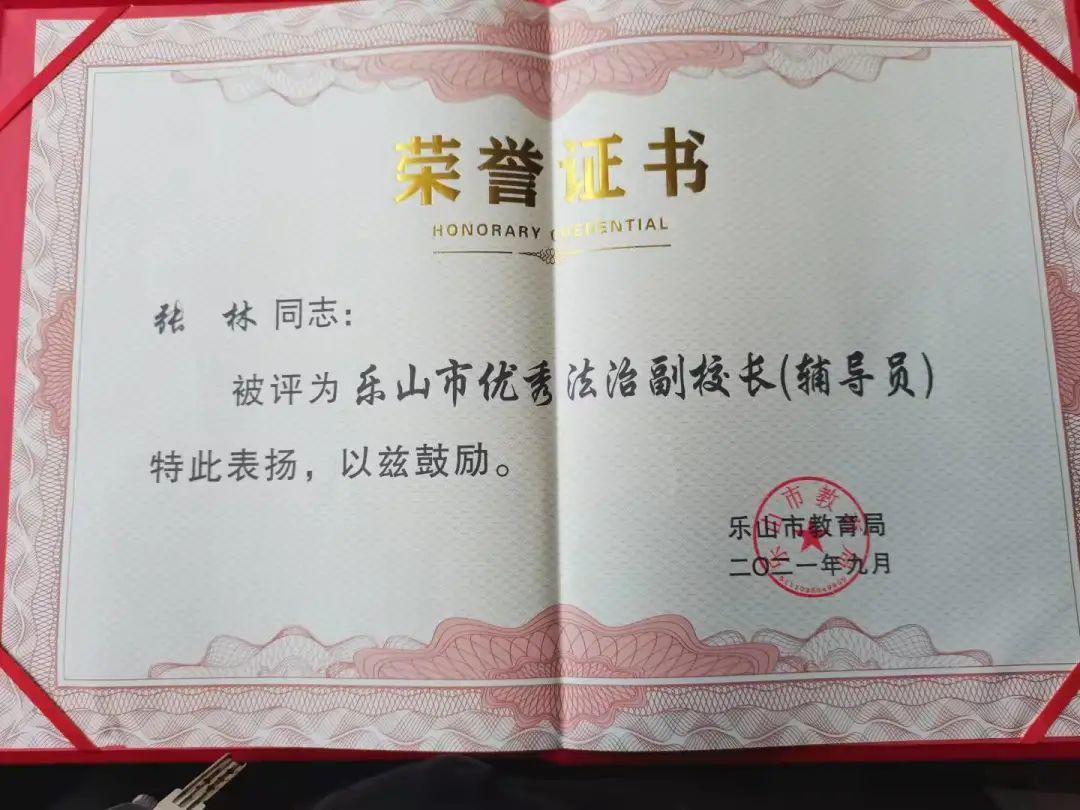 荣誉证书
HONORARY CREDENTIAL
张 林 同志：
被评为 乐山市优秀法治副校长(辅导员)
特此表扬，以兹鼓励。
乐山市教育局
二〇二一年九月